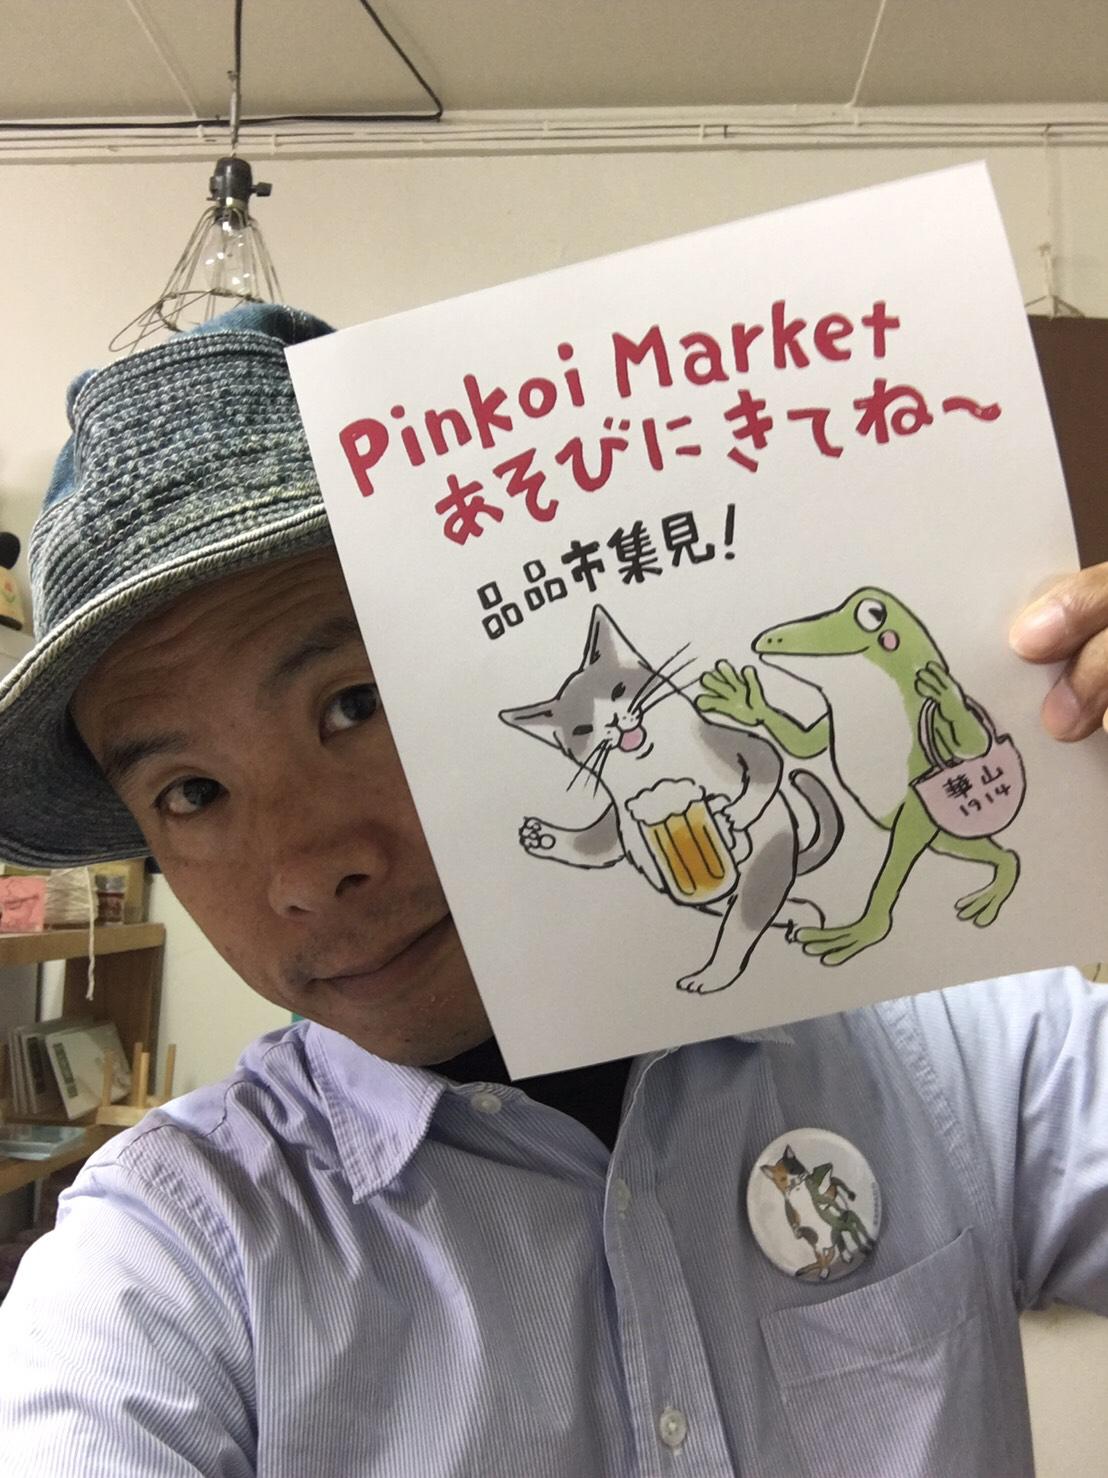 Pinkoi Market
あそびにきてね〜
品品市集見!
華山
1914